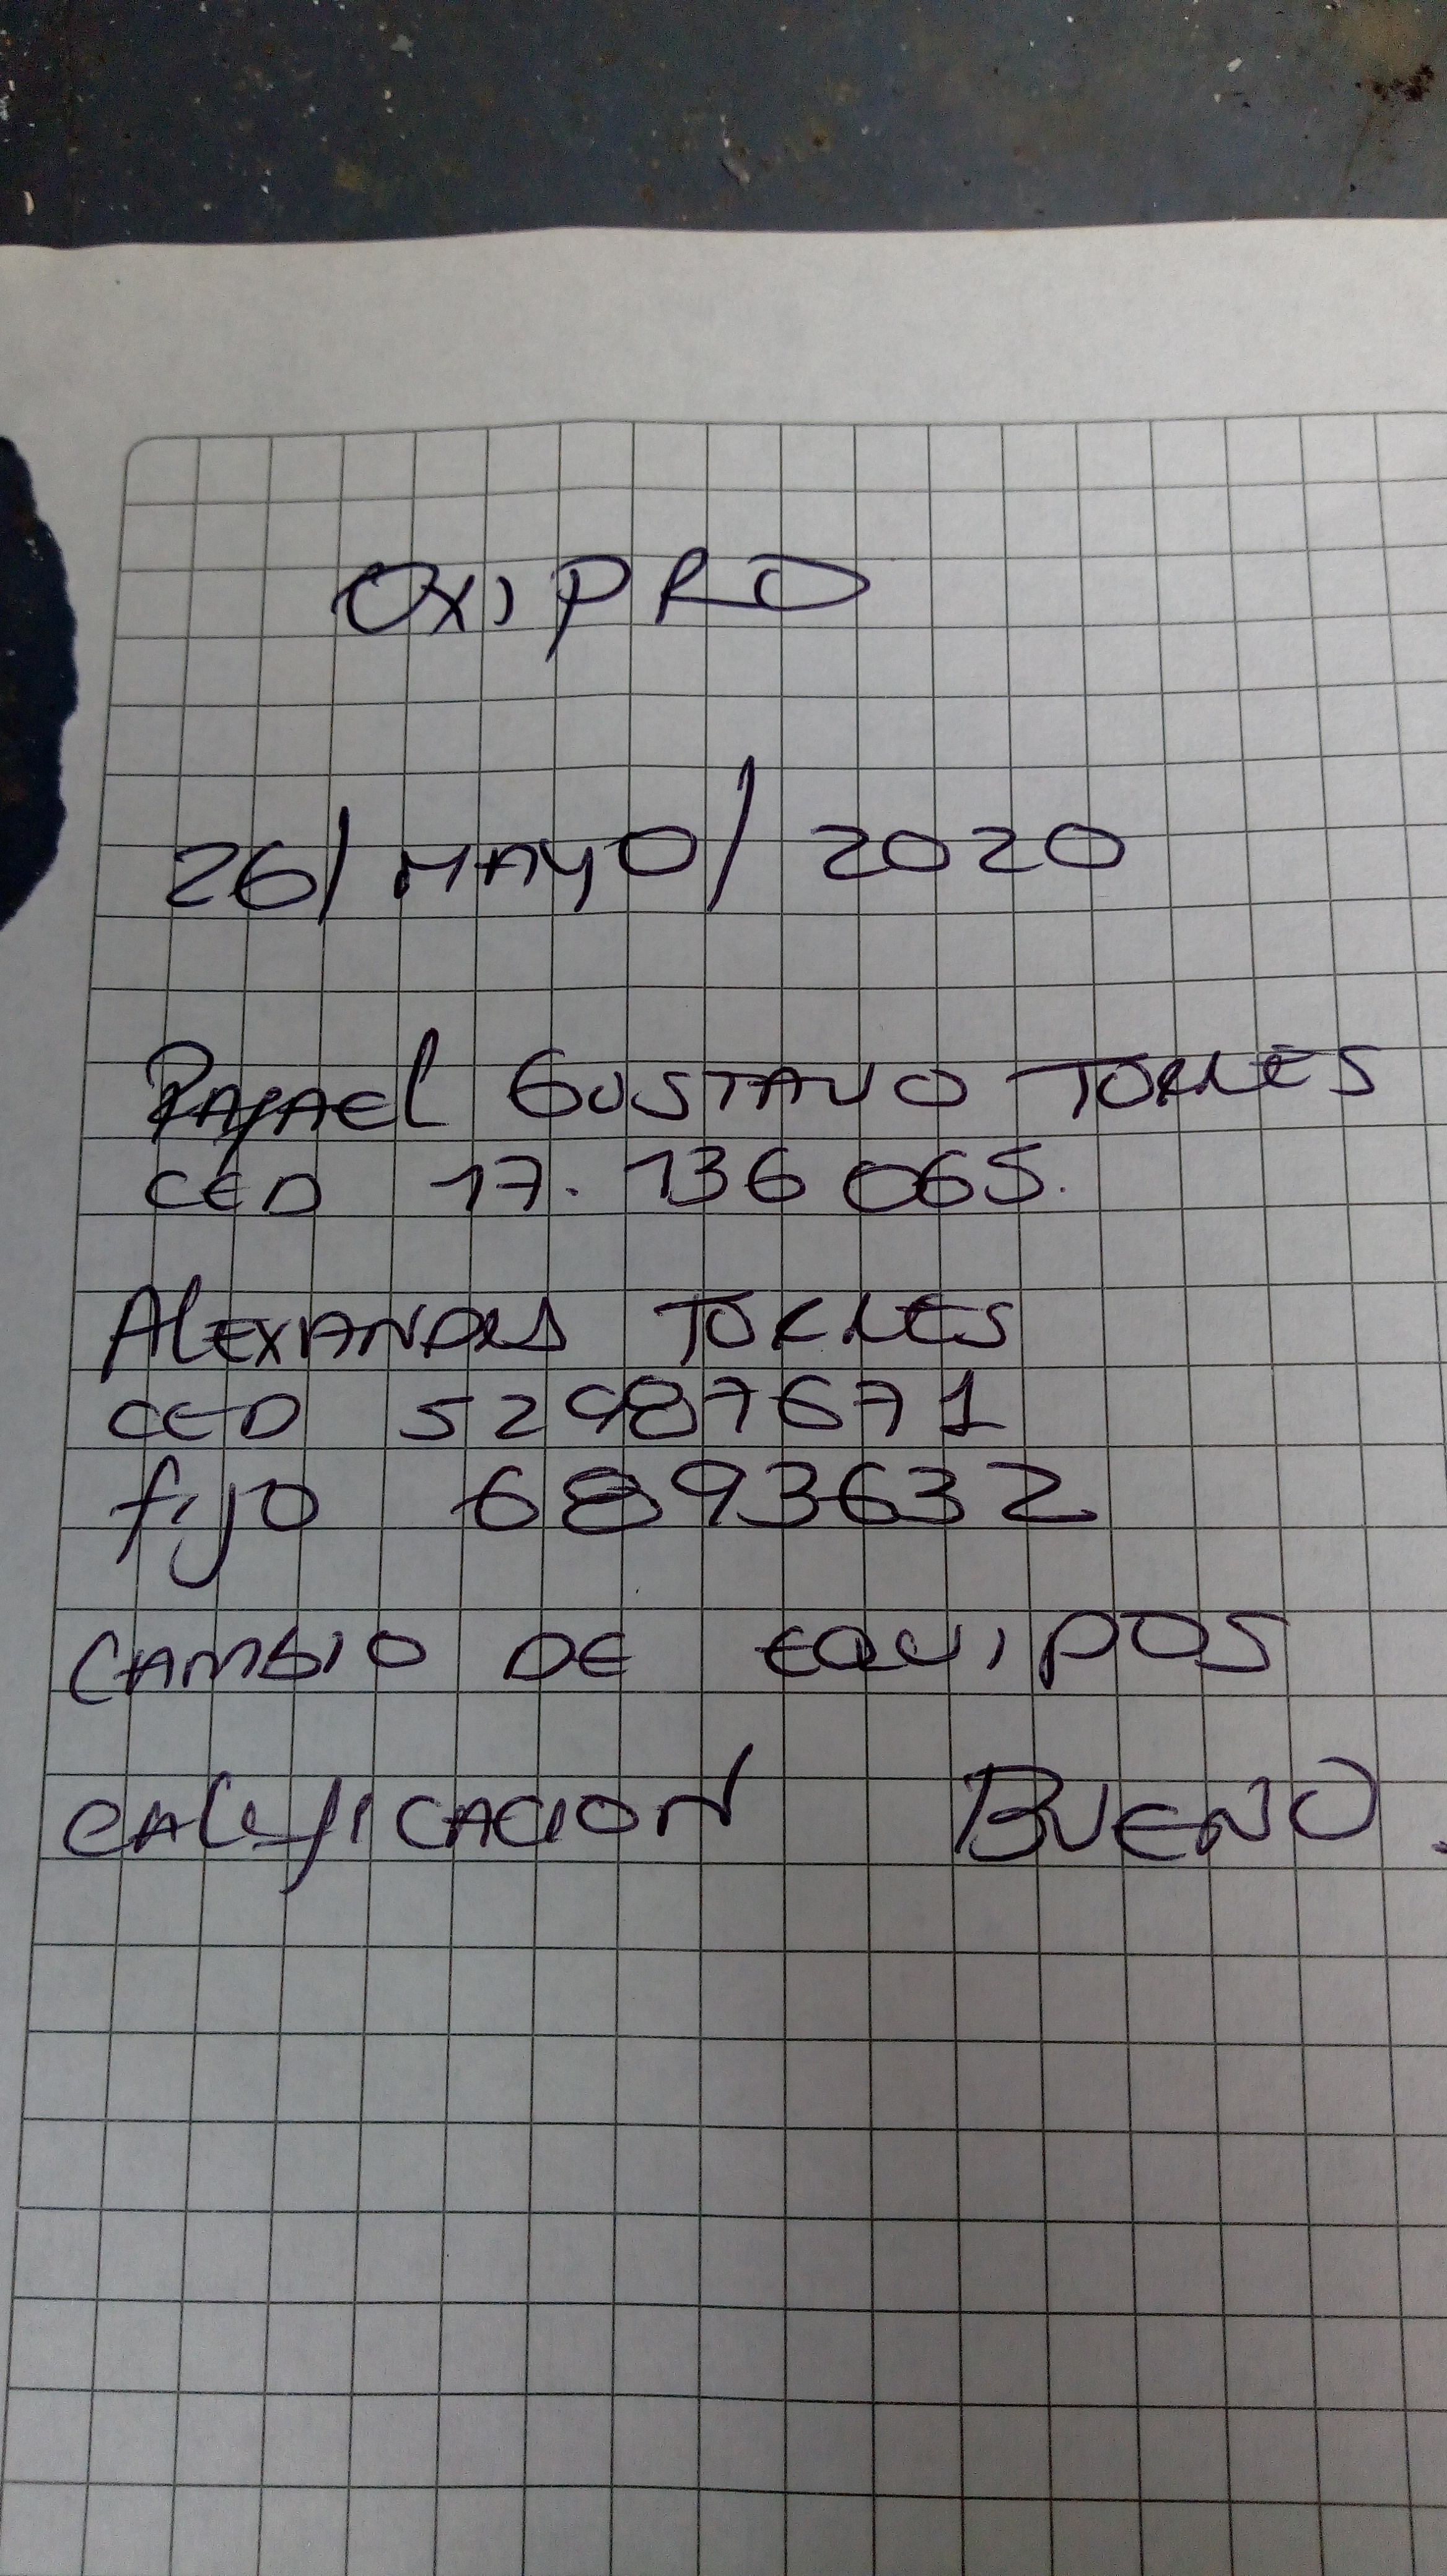 OXIPRO
26/MAYO/2020
RAfAEL GUSTAVO TORRES
CED 17.136065.
ALEXANDRA TORRES
CED 52987671
fijo 6893632
CAMBIO DE EQUIPOS
CALIfICACION BUENO.